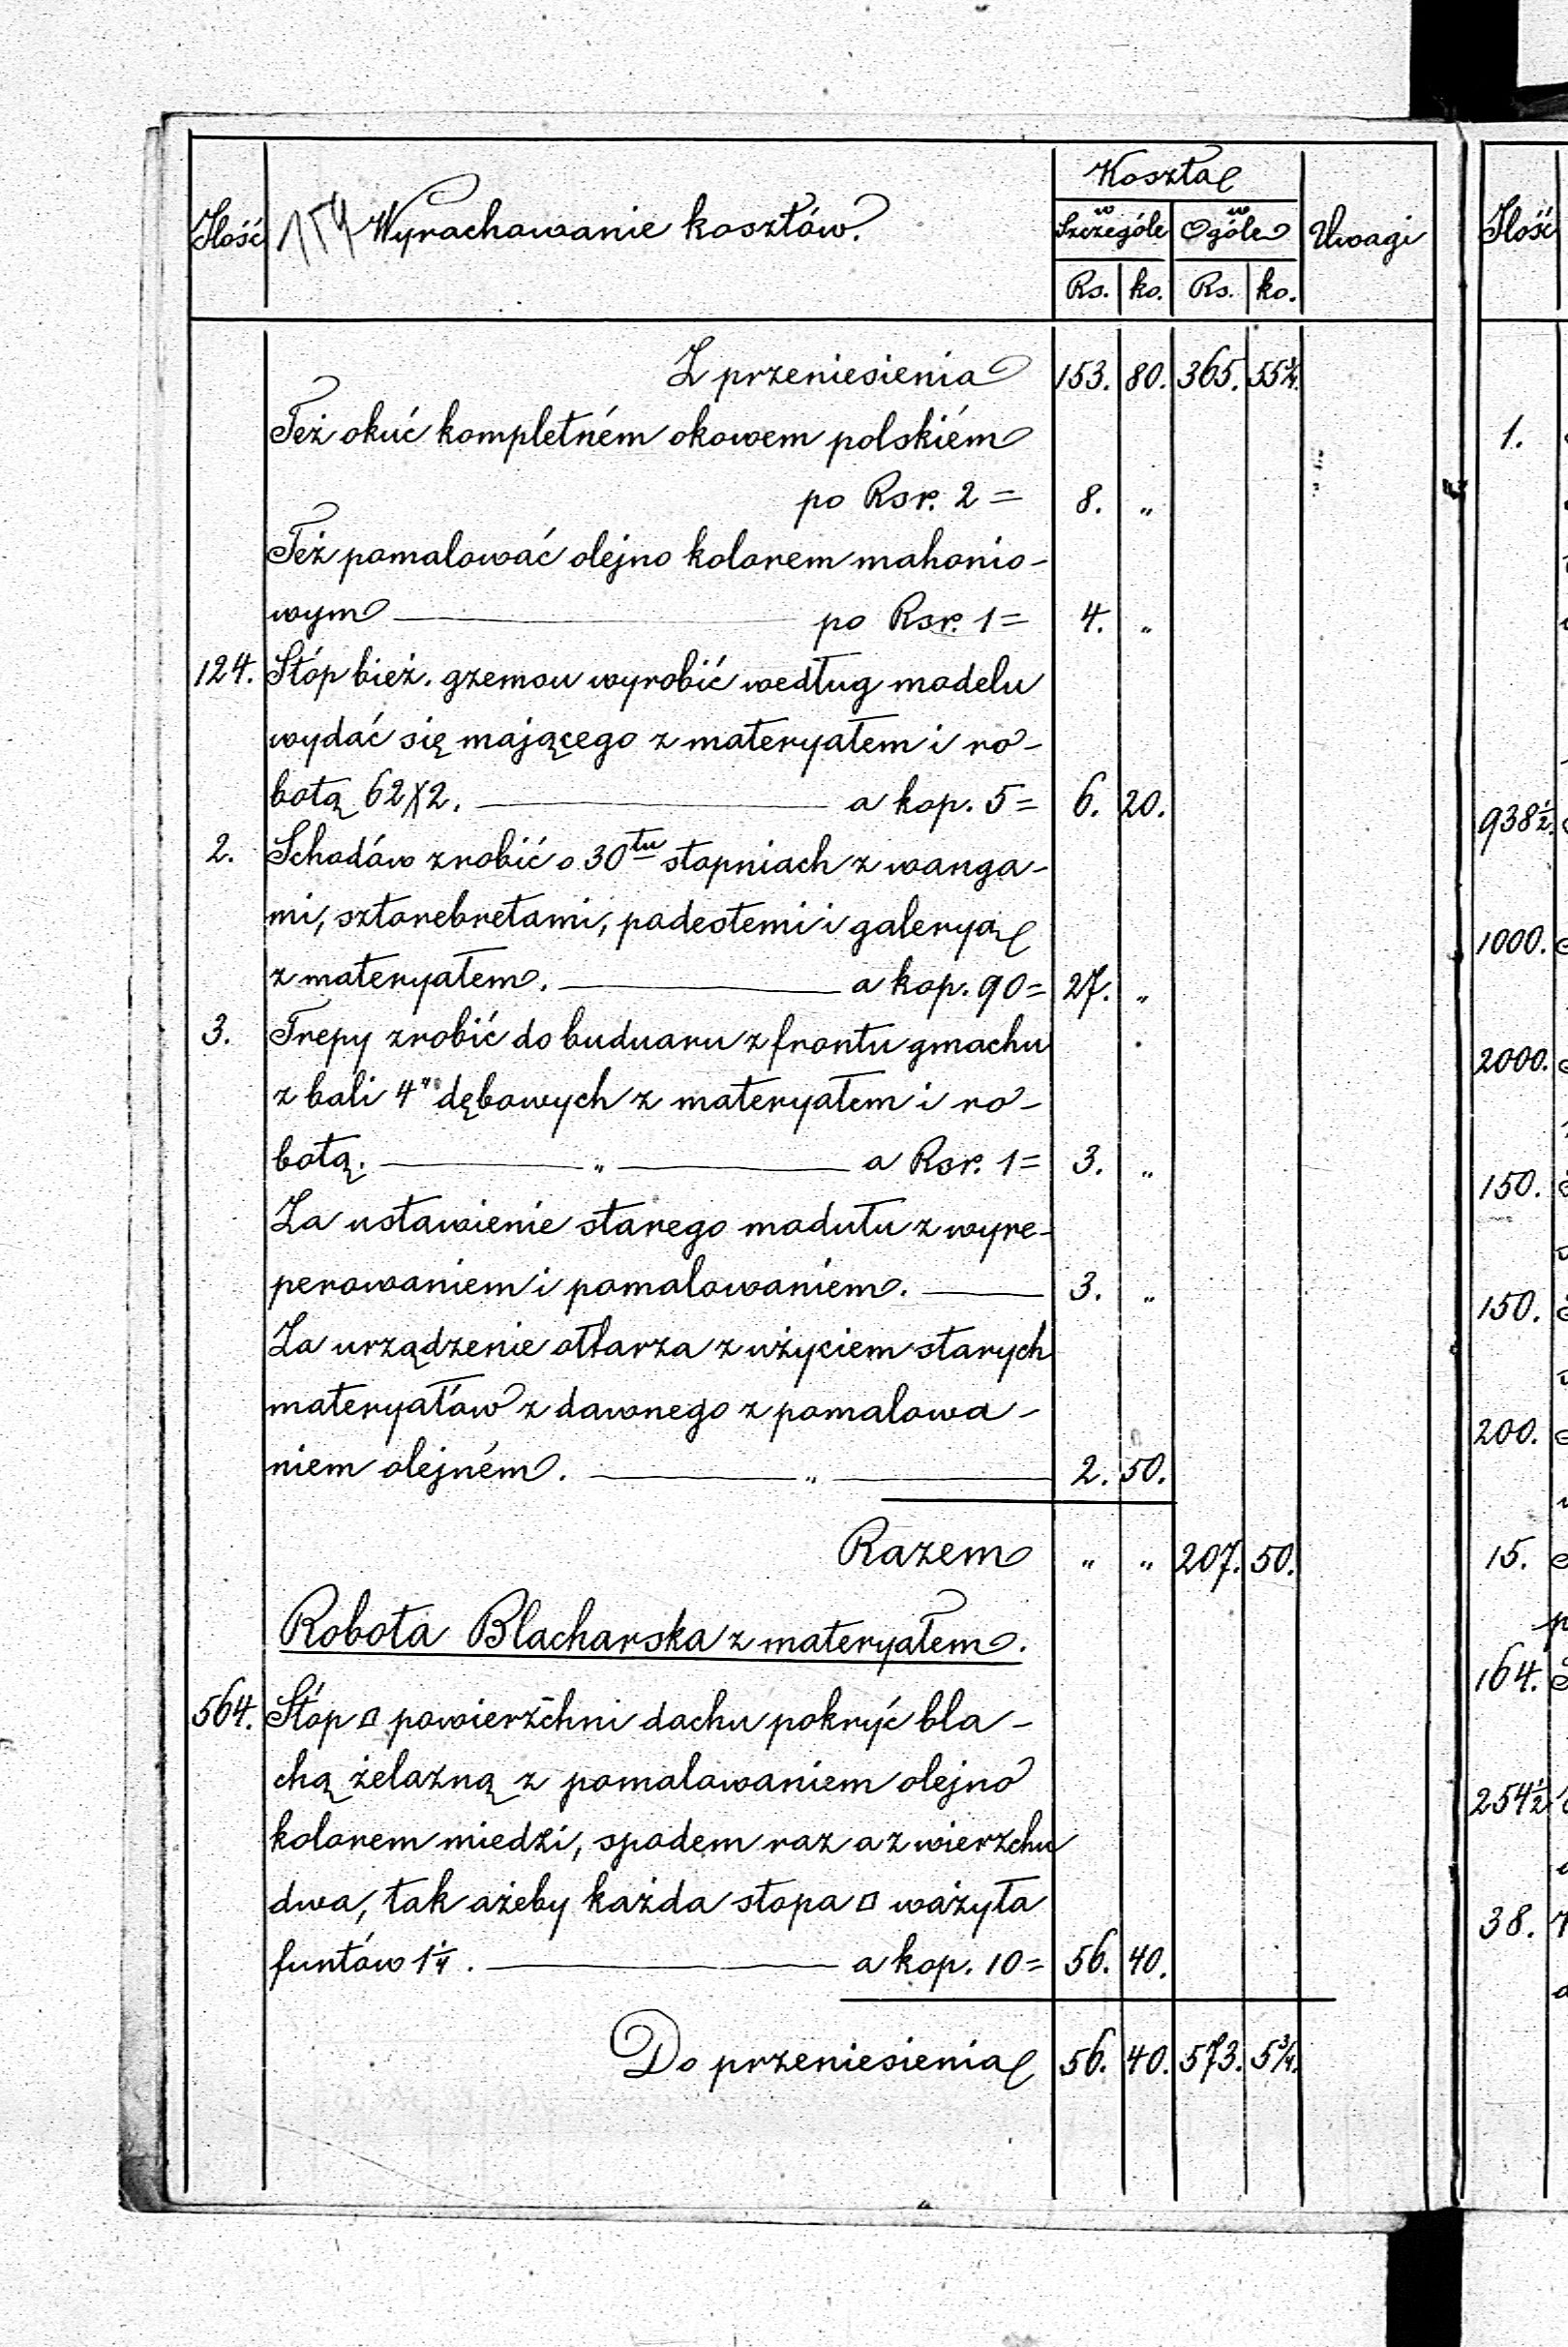 Koszta
Ilość 154 Wyrachowanie kosztów. w Szczególe w Ogóle Uwagi Ilość
Rs. ko. Rs. ko.
Z przeniesienia 153. 80. 365. 55¾.
Też okuć kompletném okowem polskiém 1.
po Rsr. 2 = 8. "
Też pomalować olejno kolorem mahonio-
wym po Rsr. 1 = 4. "
124. Stóp bież. gzemsu wyrobić według modelu
wydać się mającego z materyałem i ro-
botą 62X2. a kop. 5 = 6. 20. 938½.
2. Schodów zrobić o 30tu stopniach z wanga-
mi, sztorebretami, podestemi i galeryą 1000.
z materyałem. a kop. 90 = 27. "
3. Trepy zrobić do buduaru z frontu gmachu 2000.
z bali 4" dębowych z materyałem i ro-
botą. " a Rsr. 1 = 3. " 150.
Za ustawienie starego modułu z wyre-
perowaniem i pomalowaniem. 3. " 150.
Za urządzenie ołtarza z użyciem starych
materyałów z dawnego z pomalowa- 200.
niem olejném. " 2. 50.
Razem " " 207. 50. 15.
Robota Blacharska z materyałem.
164.
564. Stóp □ powierzchni dachu pokryć bla-
chą żelazną z pomalowaniem olejno 254½
kolorem miedzi, spodem raz a z wierzchu
dwa, tak ażeby każda stopa □ ważyła 38.
funtów 1¼. a kop. 10 = 56. 40.
Do przeniesienia 56. 40. 573. 5¾.